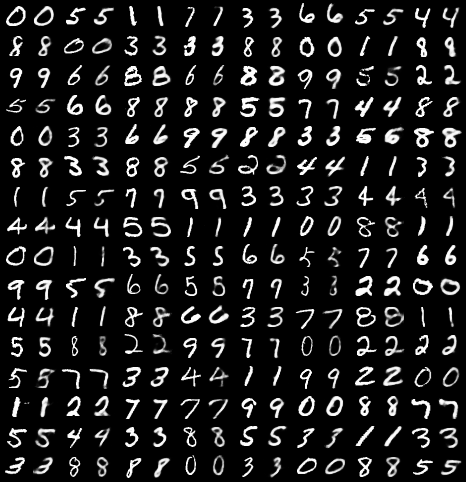 0 0 5 5 1 1 7 7 3 3 6 6 5 5 4 4
8 8 0 0 3 3 3 3 8 8 0 0 1 1 8 8
9 9 6 6 8 8 6 6 8 8 9 9 5 5 2 2
5 5 6 6 8 8 8 8 5 5 7 7 4 4 8 8
0 0 3 3 6 6 9 9 8 8 3 3 5 6 8 8
8 8 3 3 8 8 5 5 2 2 4 4 1 1 3 3
1 1 5 5 7 7 9 9 3 3 3 3 4 4 4 4
4 4 4 4 5 5 1 1 1 1 0 0 8 8 1 1
0 0 1 1 3 3 5 5 6 6 5 5 7 7 6 6
9 9 5 5 6 6 5 5 7 7 3 3 2 2 0 0
4 4 1 1 8 8 6 6 3 3 7 7 8 8 1 1
5 5 8 8 2 2 9 9 7 7 0 0 2 2 2 2
5 5 7 7 3 3 4 4 1 1 9 9 2 2 0 0
1 1 2 2 7 7 7 7 9 9 0 0 8 8 7 7
5 5 4 4 3 3 8 8 5 5 3 3 1 1 3 3
3 3 8 8 8 8 0 0 3 3 0 0 8 8 5 5